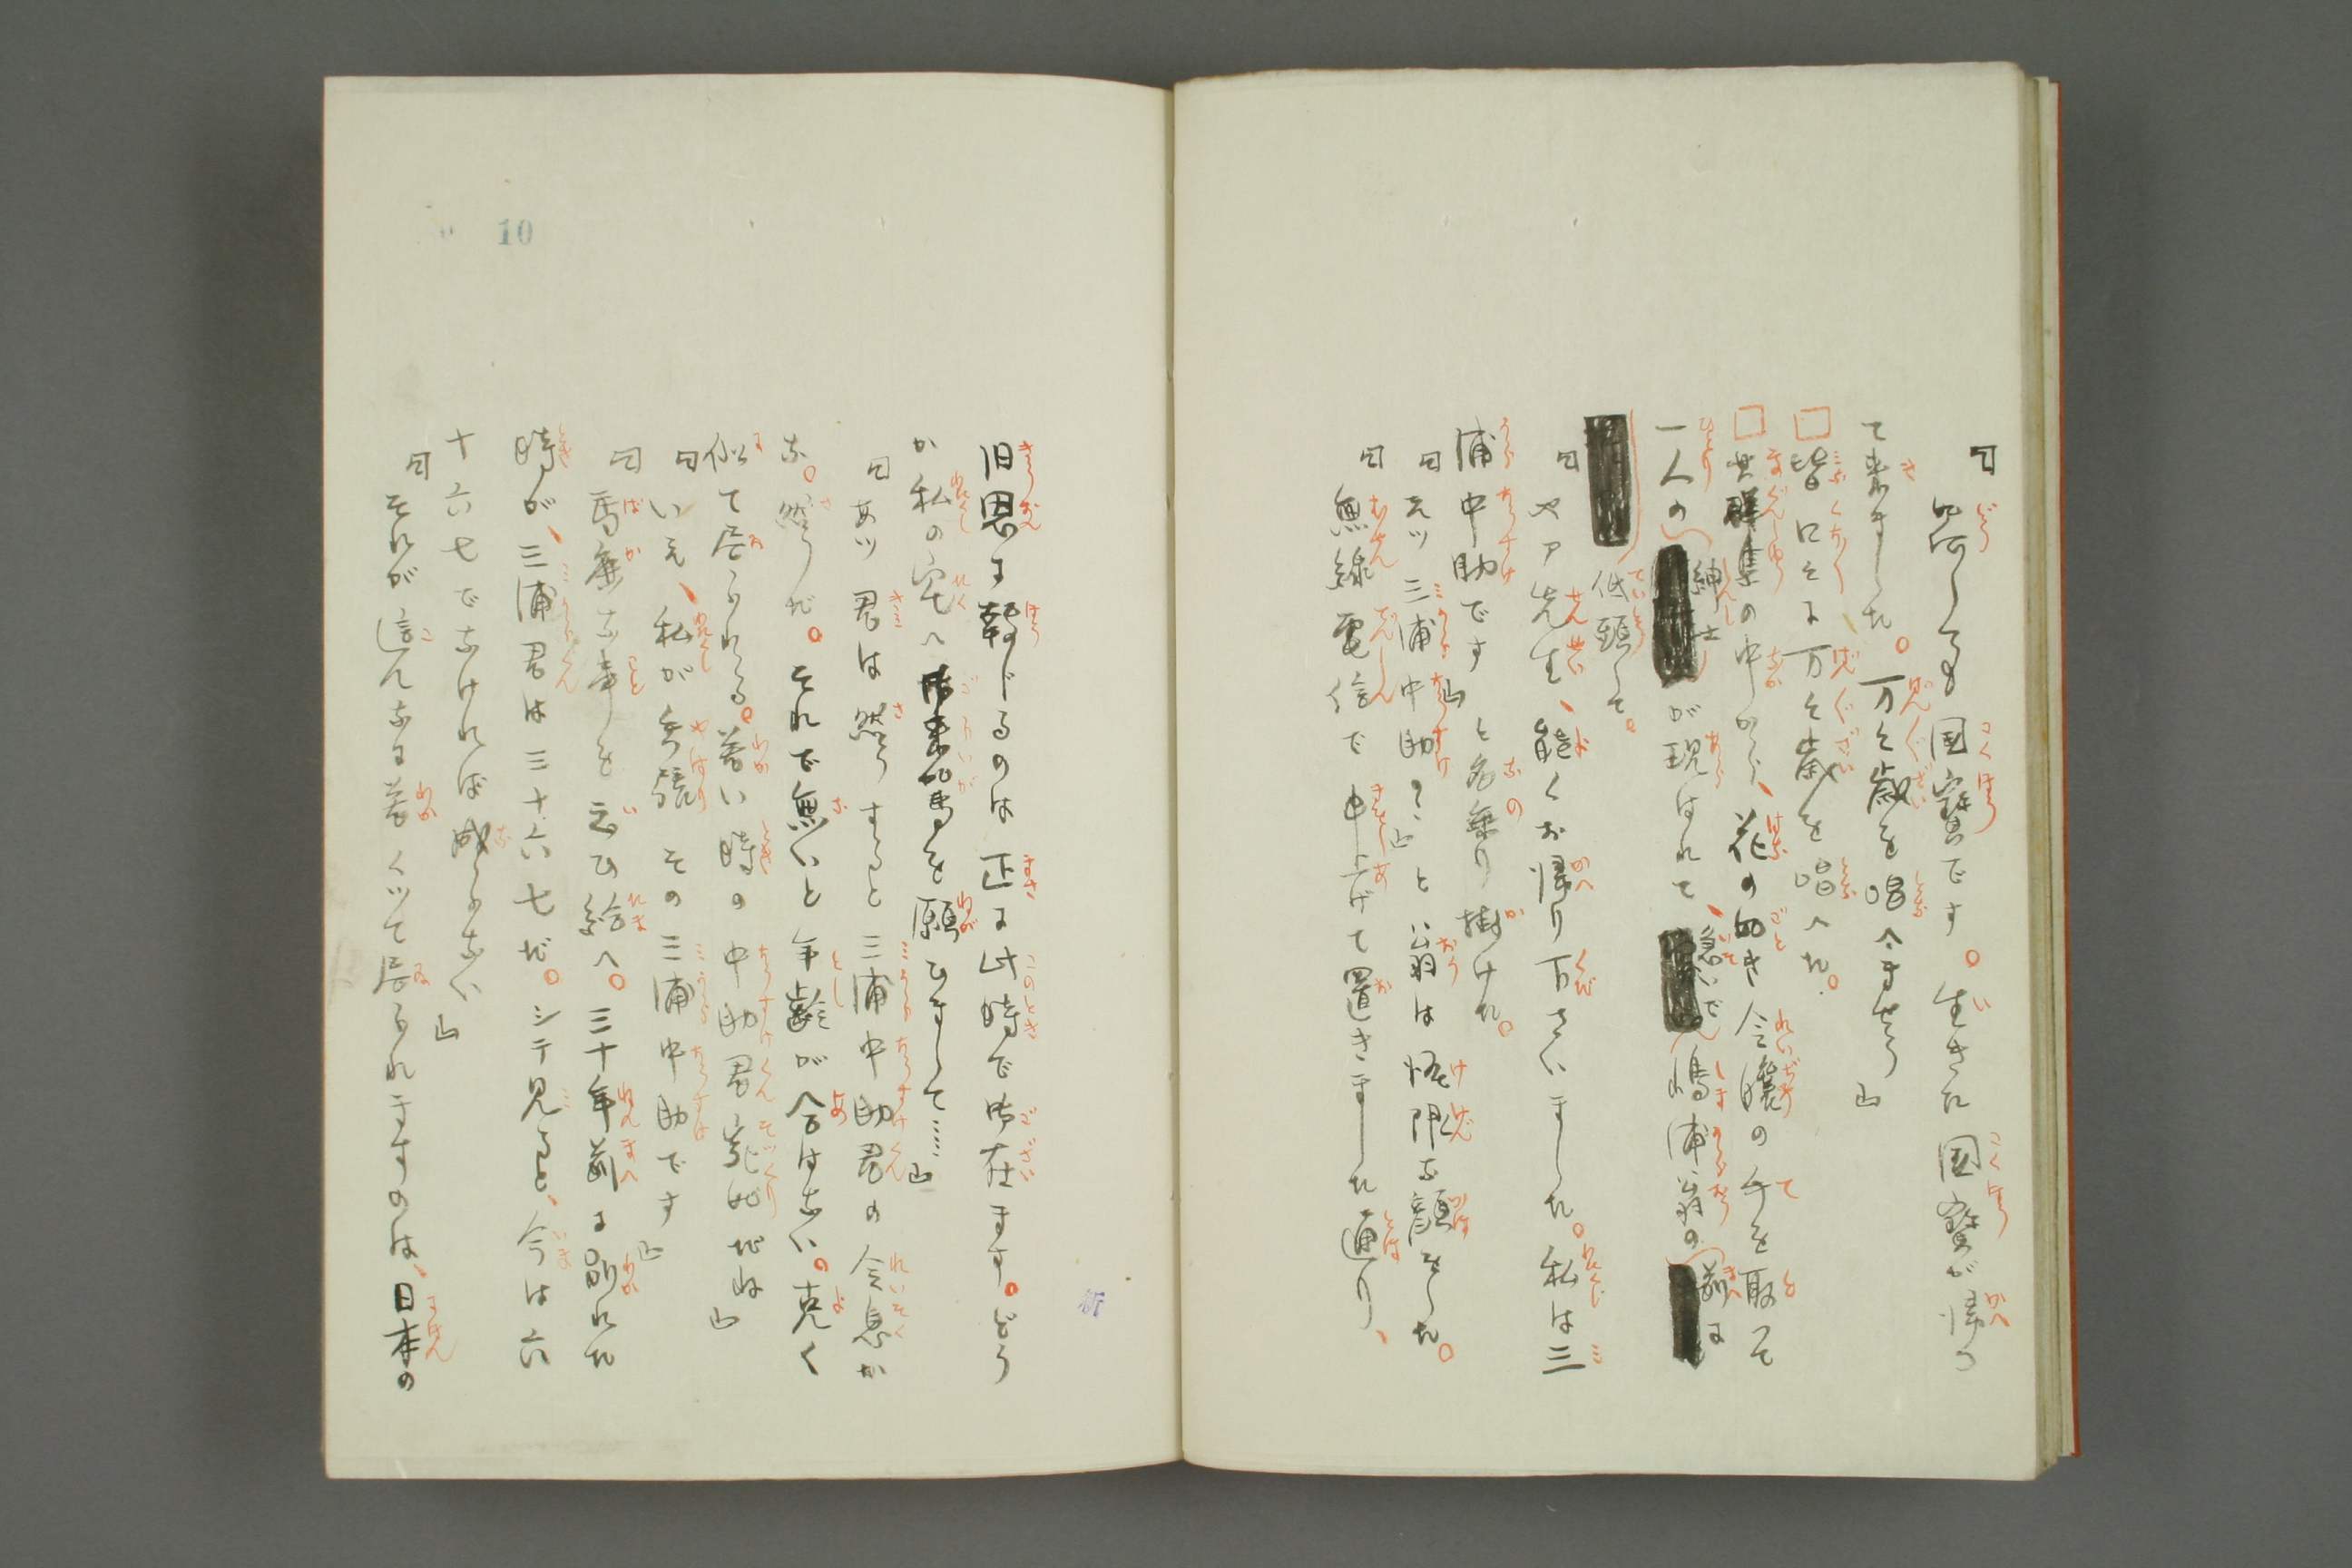 「如何しても国宝です。生きた国宝が帰つ
て来ました。万々歳を唱へませう」
□皆口々に万々歳を唱へた。
□其群集の中から、花の如き令嬢の手を取つて
一人の紳士が現はれて、急いで嶋浦翁の前に
低頭して。
「ヤア先生、能くお帰り下さいました。私は三
浦中助です」と名乗り掛けた。
「エツ三浦中助？」と翁は怪訝な顔をした。
「無線電信で申上げて置きました通り、
旧恩に報じるのは正に此時で御在ます。どう
か私の宅へ御来駕を願ひまして……」
「あツ君は然うすると三浦中助君の令息か
な。然うだ。それで無いと年齢が合はない。克く
似て居られる。若い時の中助君そつくりだね」
「いえ、私が矢張その三浦中助です」
「馬鹿な事を云ひ給へ。三十年前に別れた
時が、三浦君は三十六七だ。シテ見ると、今は六
十六七でなければ成らない」
「それが這んなに若くツて居られますのは、日本の
10
新